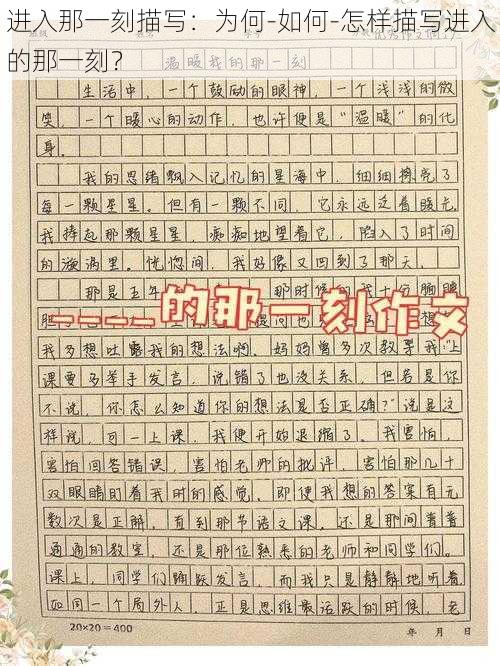 进入那一刻描写：为何-如何-怎样描写进入
的那一刻？
温暖我的那一刻
生活中，一个鼓励的眼神，一个浅浅的微
笑，一个暖心的动作，也许便是“温暖”的化
身。
我的思绪飘入记忆的星海中，细细擦亮了
每一颗星星。但有一颗不同，它永远泛着暖光。
我捧起那颗星星，痴痴地望着它，陷入了时间
的漩涡里。恍惚间，我好像又回到了那天，
那是五年
____的那一刻作文
我多想吐露我的想法啊，妈妈曾多次教导我“上
课要多举手发言，说错了也没关系，但若是你
不说，你怎么知道你的想法是否正确？”说是这
样说，可一上课，我便开始退缩了。我害怕，
害怕回答错误，害怕老师的批评，害怕那几十
双眼睛盯着我时的感觉，即便我想的答案有无
数次是正解，直到那节语文课。还是那间普普
通通的教室，还是那位熟悉的老师和同学们。
课上，同学们踊跃发言，而我只是静静地听着
如同一个局外人，正是思维最活跃的时候，老
20×20=400
年 月 日